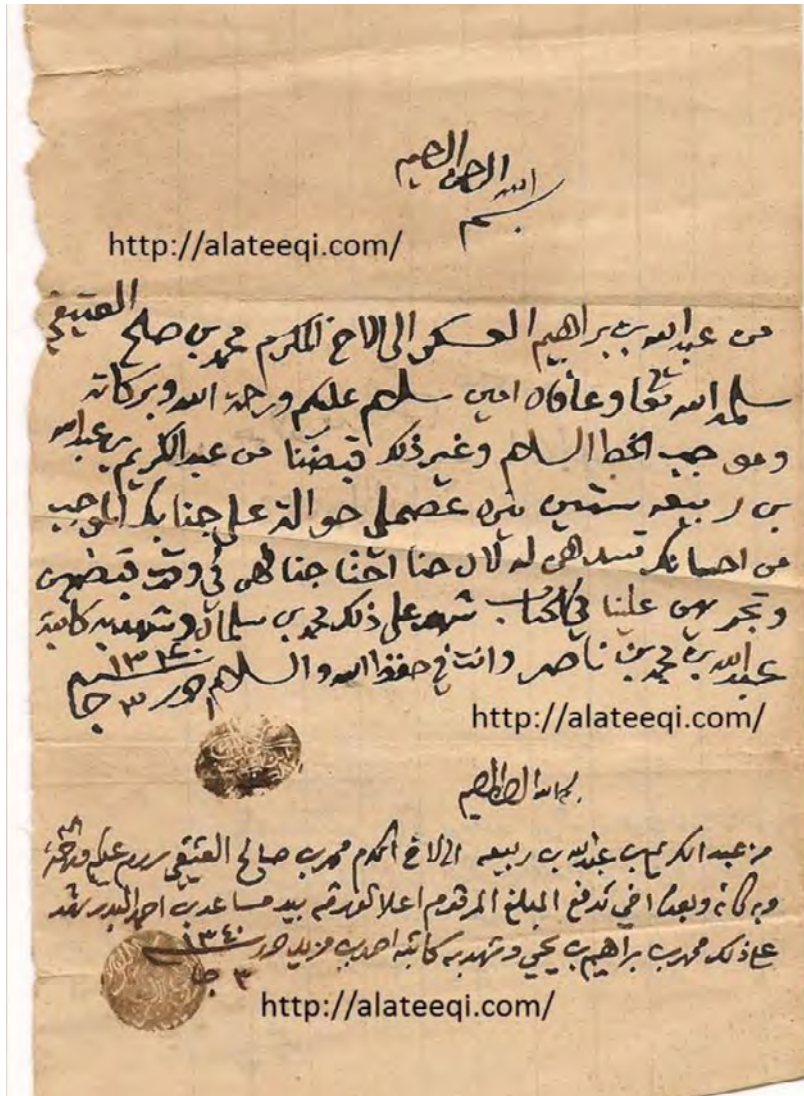 بسم الله الرحمن الرحيم
http://alateeqi.com/
من عبدالله بن براهيم العسكر الى الاخ المكرم محمد بن صلح العتيقي
سلمه الله تعا وعافاه امين سلام عليكم ورحمة الله وبركاته
وموجب الخط السلام وغير ذلك قبضنا من عبدالكريم بن عبدالله
بن ربيعه ستين نيره عصملي حوالة على جنابكم الموجب
من احسانكم تسدهن له لان حنا احنا جنا لهن في وقت قبضهن
وتجرهن علينا في الحساب شهد على ذلك محمد بن سليمان وشهد به كاتبه
عبدالله بن محمد بن ناصر وانت في حفظ الله والسلام حرر ٣ جا ١٣٤٠
http://alateeqi.com/
بسم الله الرحمن الرحيم
من عبد الكريم بن عبدالله بن ربيعه الى الاخ المكرم محمد بن صالح العتيقي سلام عليكم ورحمة الله
وبركاته وبعد اخي تدفع المبلغ المرقوم اعلا الورقه بيد مساعد بن احمد البدر شهد
على ذلك محمد بن براهيم بن يحي وشهد به كاتبه احمد بن مزيد حرر ٣ جا ١٣٤٠
http://alateeqi.com/